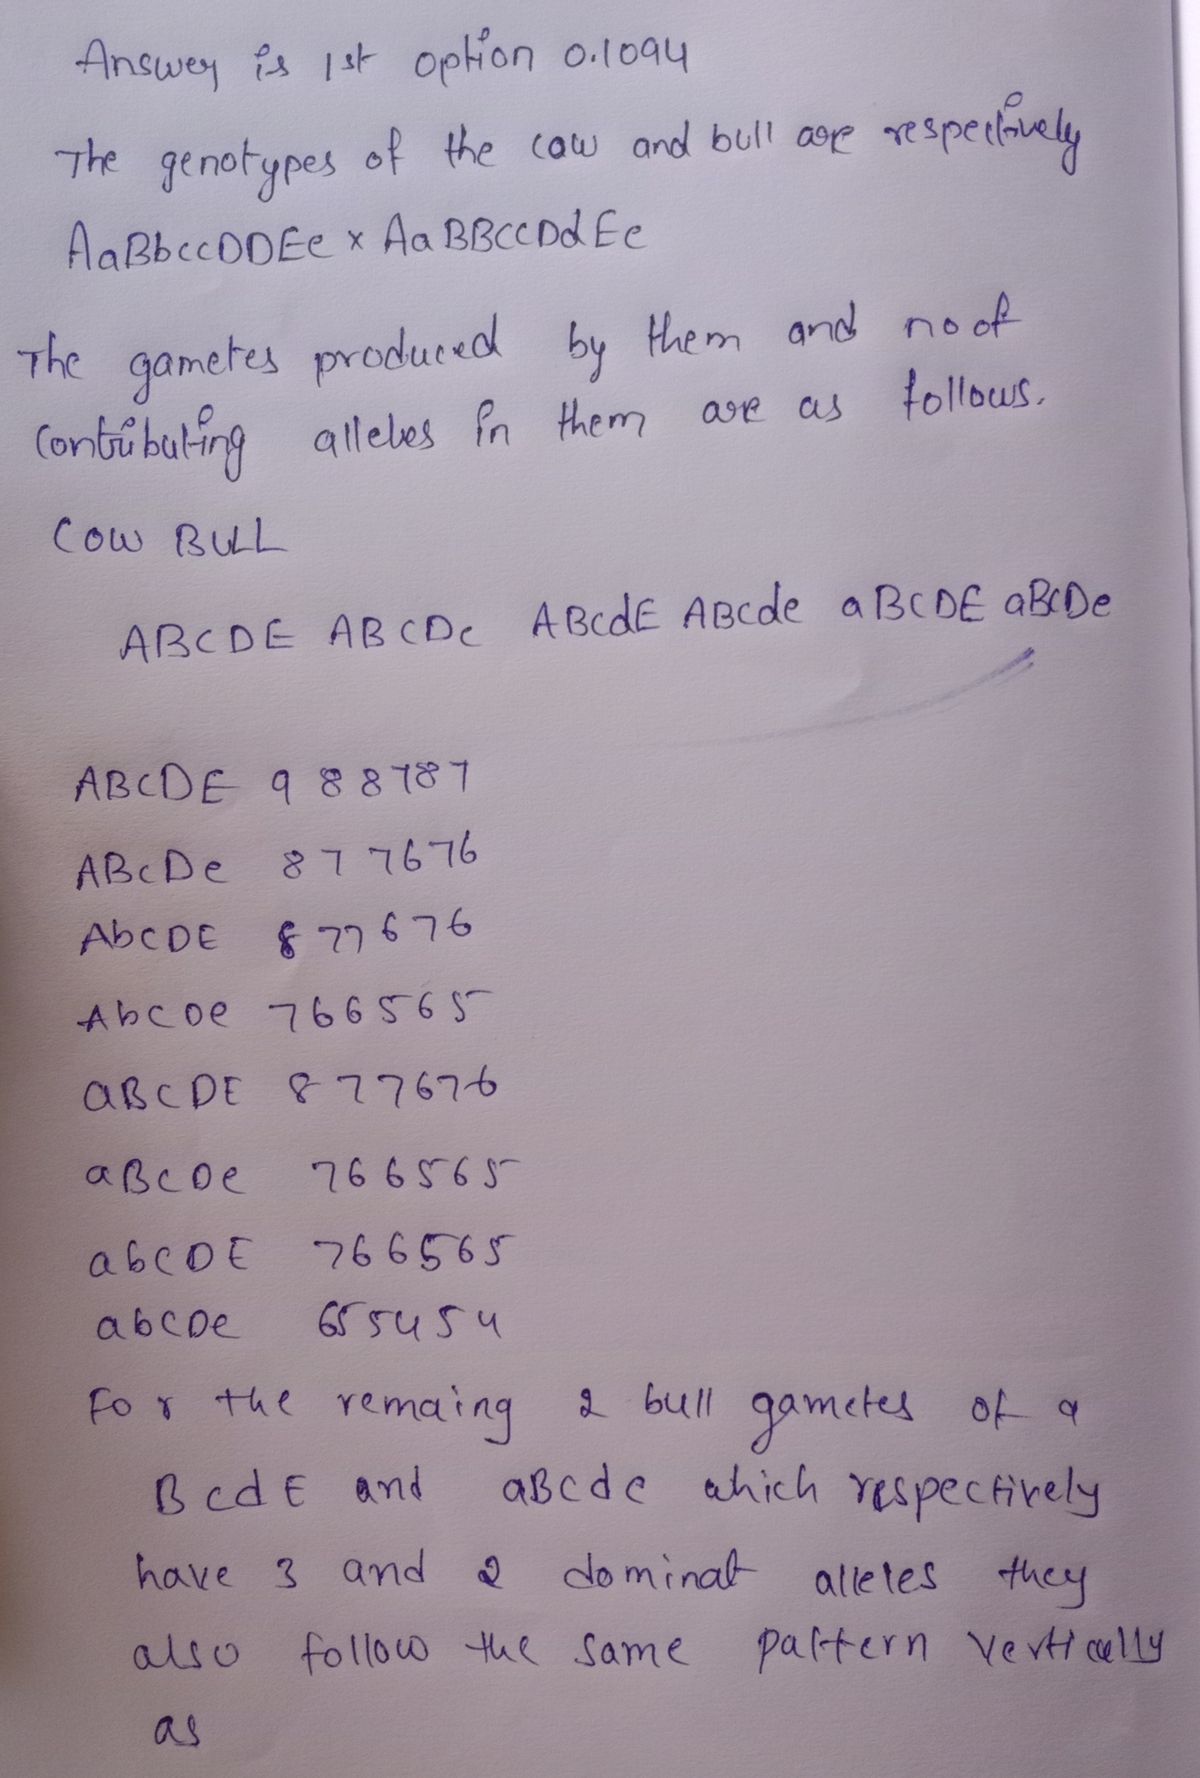 Answer is 1st option 0.1094
The genotypes of the cow and bull are respectively
AaBbccDDEe x AaBBCCDdEe
The gametes produced by them and no of
contributing alleles in them are as follows.
COW BULL
ABCDE ABCDe ABCdE ABCde aBCDE aBCDe
ABCDE 9 8 8 7 8 7
ABcDe 8 7 7 6 7 6
AbCDE 8 7 7 6 7 6
AbCDe 7 6 6 5 6 5
aBCDE 8 7 7 6 7 6
aBcDe 7 6 6 5 6 5
abCDE 7 6 6 5 6 5
abcDe 6 5 5 4 5 4
For the remaing 2 bull gametes of a
BcdE and aBcde which respectively
have 3 and 2 dominat alleles they
also follow the same pattern vertically
as